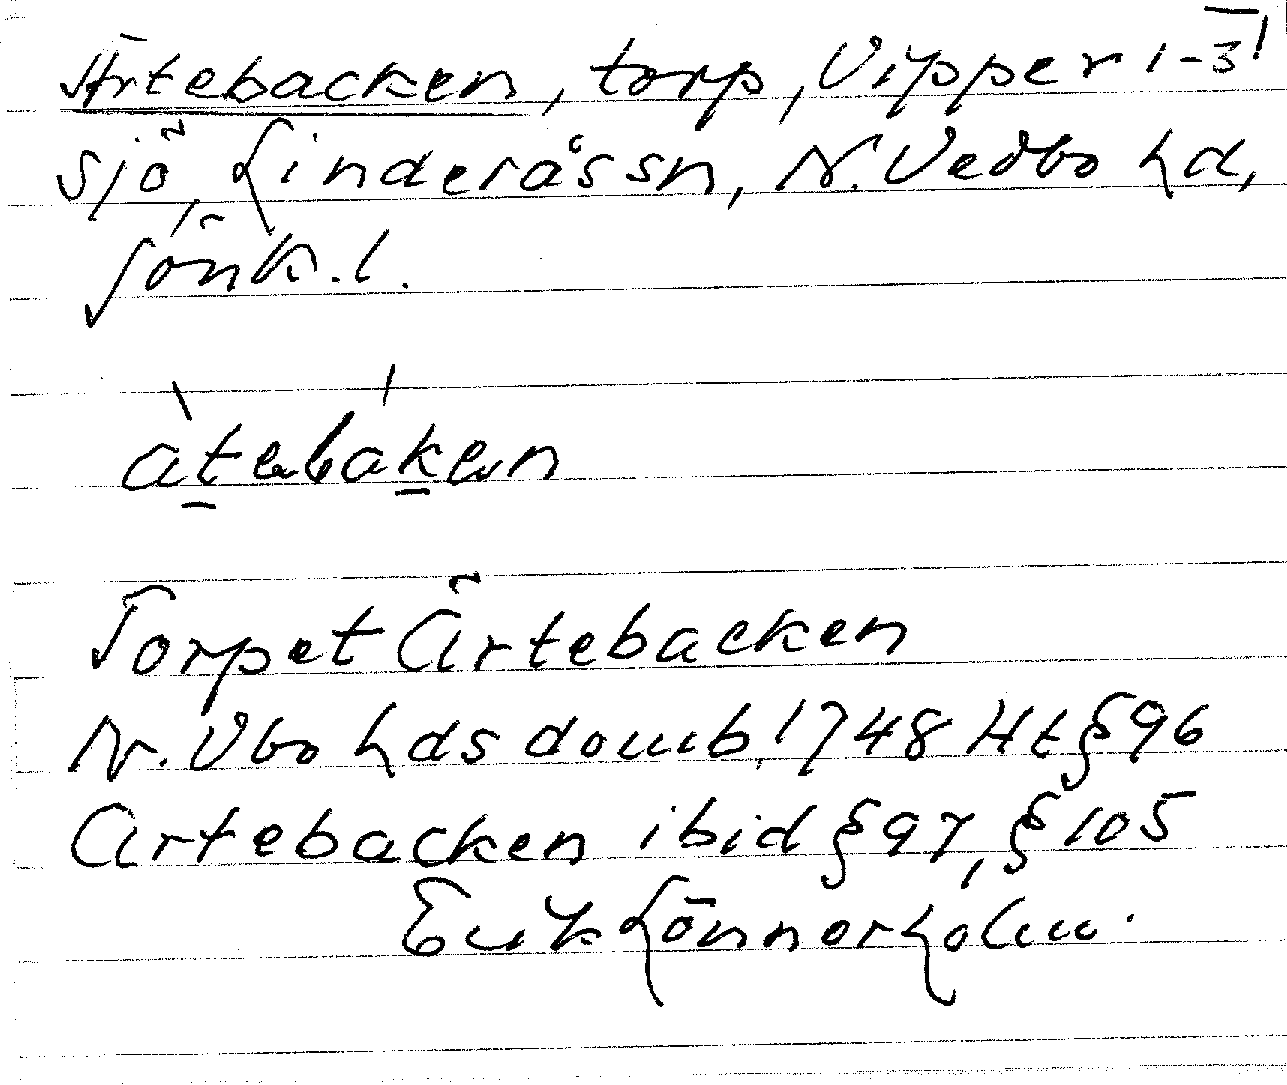 Ärtebacken, torp, Vipper 1-3
sjö, Linderås sn, N. Vedbo hd,
Jönk. l.
àtebáken
Torpet Ärtebacken
N. Vbo hds domb. 1748 Ht § 96
Artebacken ibid § 97, § 105
Erik Lönnerholm.